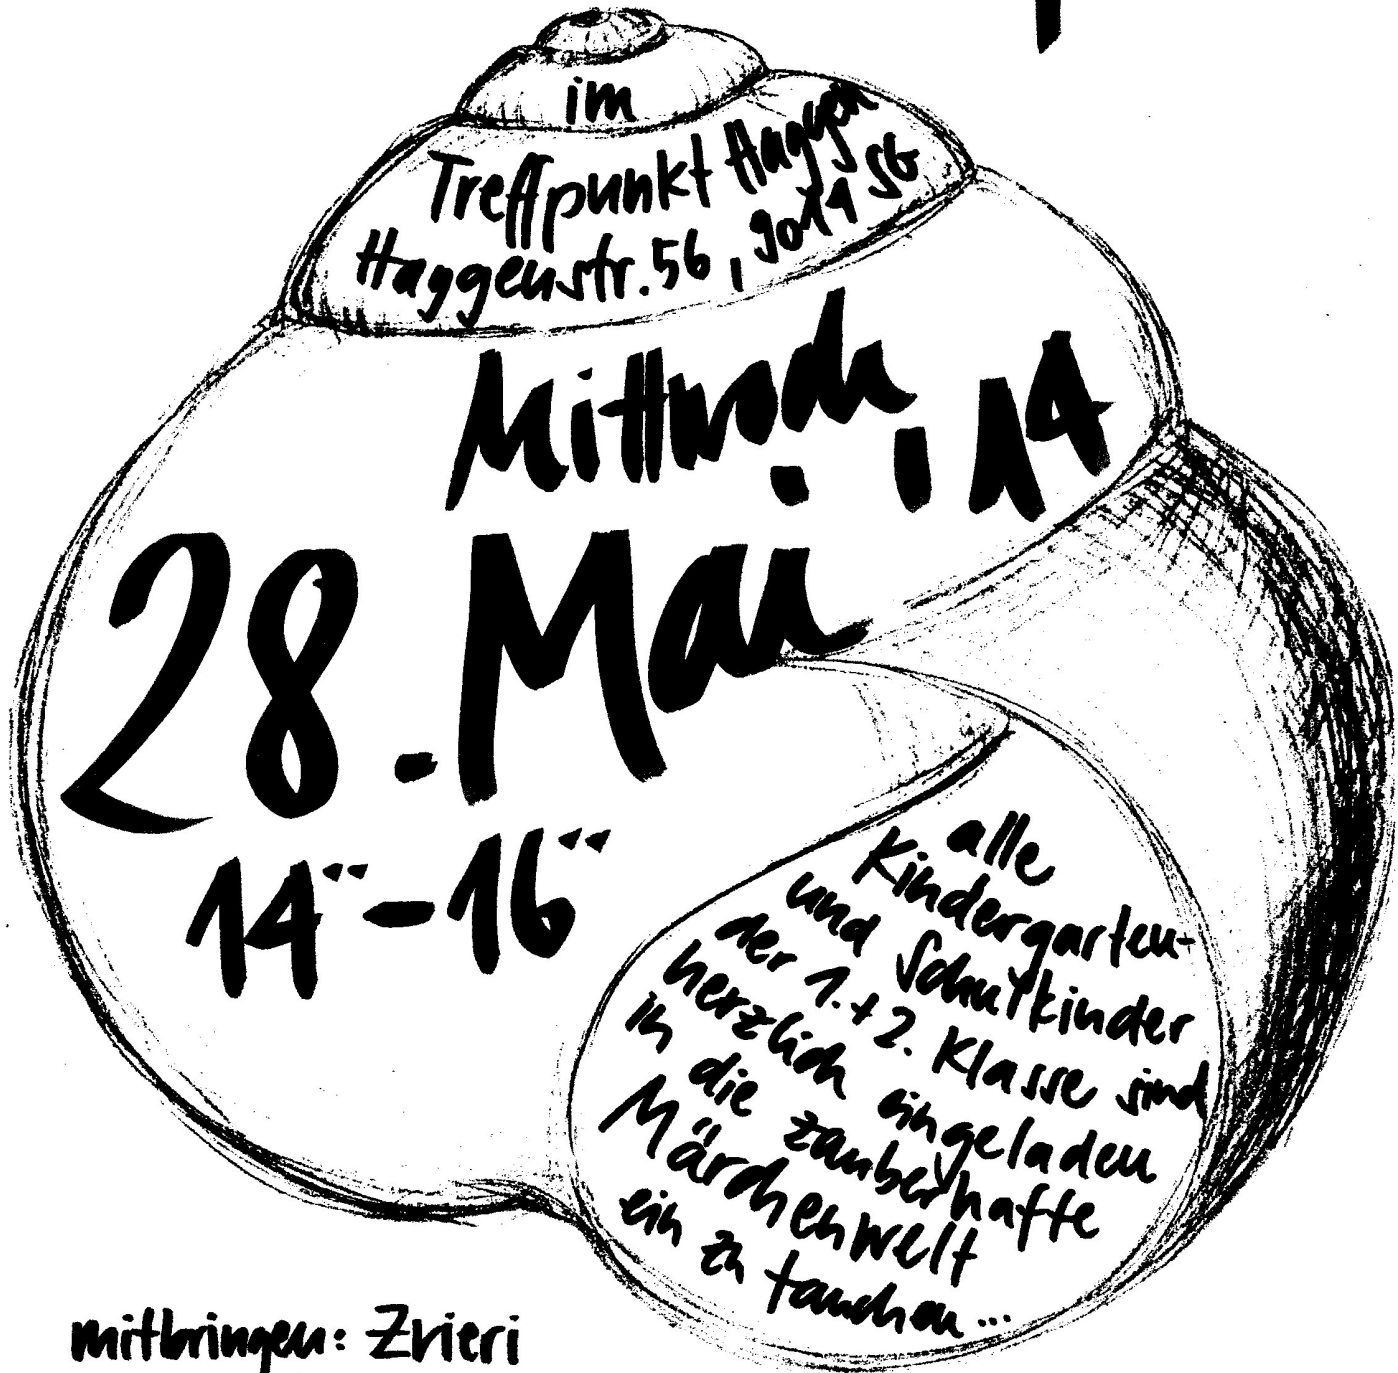 im
Treffpunkt Haggen
Haggenstr. 56, 9014 SG
Mittwoch
28. Mai '14
14°° - 16°°
alle
Kindergarten-
und Schulkinder
der 1. + 2. Klasse sind
herzlich eingeladen
in die zauberhafte
Märchenwelt
ein zu tauchen...
mitbringen: Zvieri